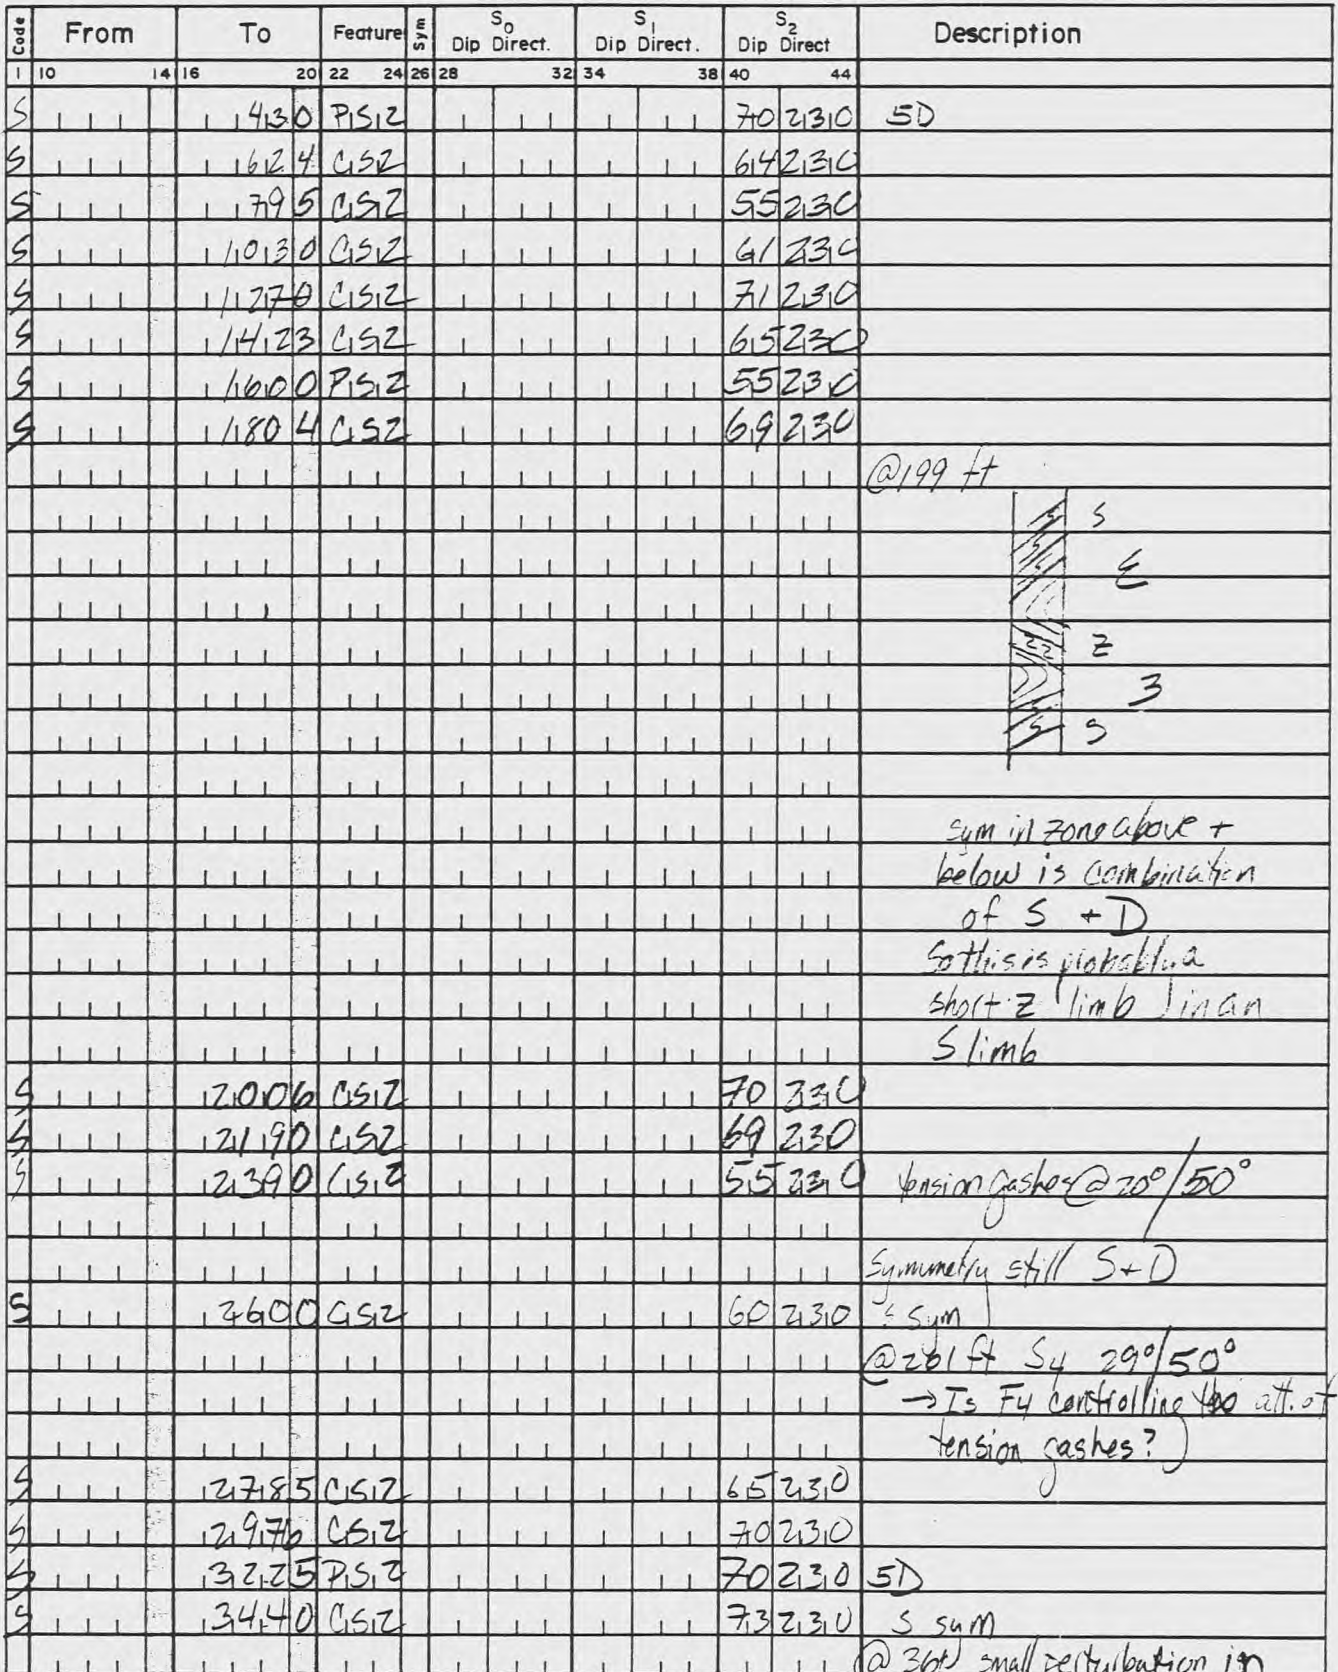 Code From To Feature Sym S0 Dip Direct. S1 Dip Direct. S2 Dip Direct Description
1 10 14 16 20 22 24 26 28 32 34 38 40 44
S 430 PS2 70 230 5D
S 624 CS2 64 230
S 795 CS2 55 230
S 1030 CS2 61 230
S 1270 CS2 71 230
S 1423 CS2 65 230
S 1600 PS2 55 230
S 1804 CS2 69 230
@199 ft
S
Σ
Z
3
S
sym in zone above +
below is combination
of S + D
So this is probably a
short Z limb in an
S limb
S 2006 CS2 70 230
S 2190 CS2 69 230
S 2390 CS2 55 230 tension gashes @ 20°/50°
Symmetry still S+D
S 2600 CS2 60 230 S sym
@261 ft S4 29°/50°
→ Is F4 controlling the att. of
tension gashes?
S 2785 CS2 65 230
S 2976 CS2 70 230
S 3225 PS2 70 230 5D
S 3440 CS2 73 230 S sym
small perturbation in